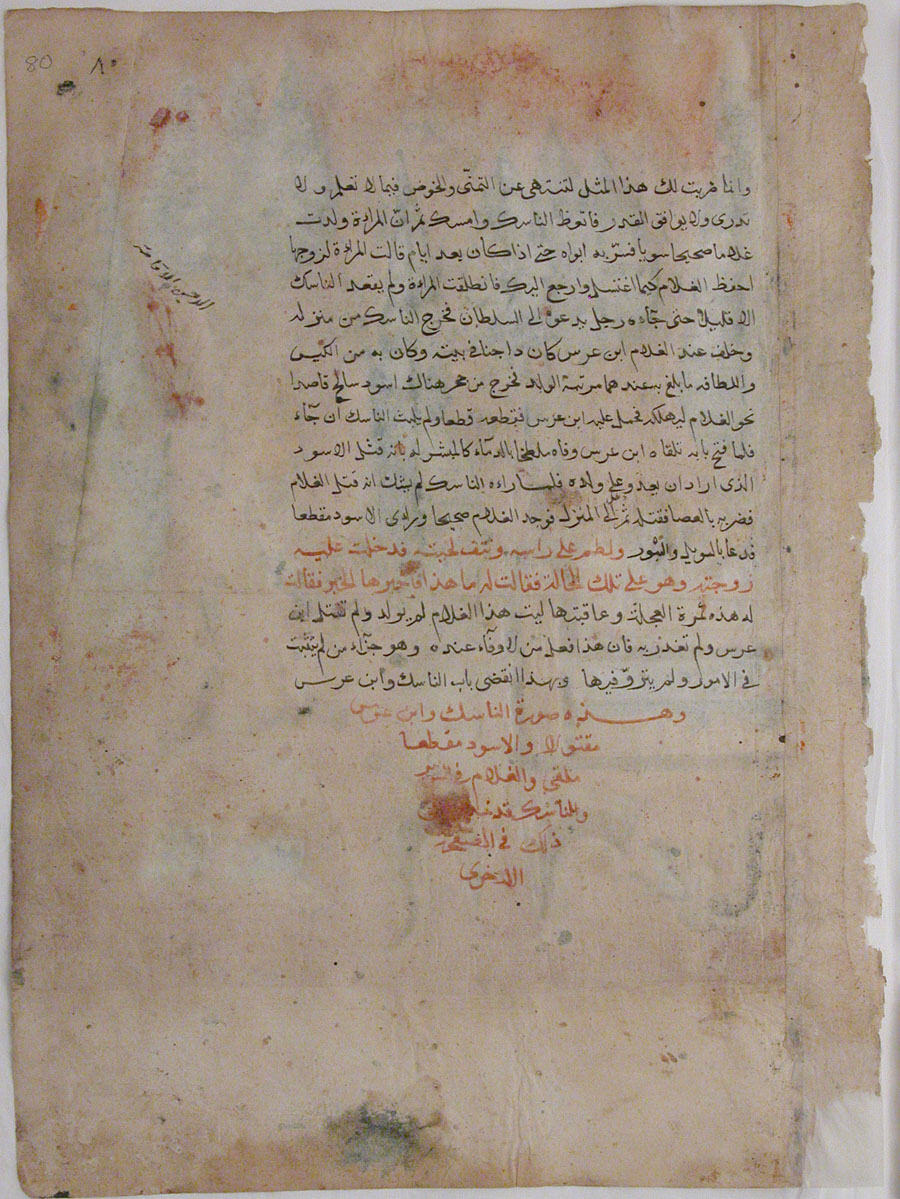 80 ٨٠
وانما ضربت لك هذا المثل لتنتهى عن التمنّى والخوض فيما لا تعلم ولا
تدرى ولا يوافق القدر فاتعظ الناسك وامسك ثم انّ المراة ولدت
غلاما صحيحا سويا فسرّ به ابواه حتى اذا كان بعد ايام قالت المراة لزوجها
احفظ الغلام كيما اغتسل وارجع اليك فانطلقت المراة ولم يقعد الناسك
الا قليلا حتى جآءه رجل يدعوه الى السلطان فخرج الناسك من منزله
وخلف عند الغلام ابن عرس كان داجنا فى بيته وكان به من الكيس
واللطافه ما بلغ به عندهما مرتبة الولد فخرج من جحر هناك اسود سالخ قاصدا
نحو الغلام ليهلكه فحمل عليه ابن عرس فقطعه قطعا ولم يلبث الناسك ان جآء
فلما فتح بابه تلقاه ابن عرس وفاه ملطخا بالدمآء كالمبشر له بانه قتل الاسود
الذى اراد ان يعدو على ولده فلما راءه الناسك لم يشك انه قتل الغلام
فضربه بالعصا فقتله ثم الى المنزل فوجد الغلام صحيحا وراى الاسود مقطعا
فدعا بالويل والثبور ولطم على راسه ونتف لحيته فدخلت عليه
زوجته وهو على تلك الحالة فقالت له ما هذا فاخبرها الخبر فقالت
له هذه ثمرة العجلة وعاقبتها ليت هذا الغلام لم يولد ولم تقتل ابن
عرس ولم تغدر به فان هذا فعل من لا وفآء عنده وهو جزآء من لم يتثبت
فى الامور ولم يتروّ فيها وبهذا انقضى باب الناسك وابن عرس
وهذه صورة الناسك وابن عرس
مقتولا والاسود مقطعا
ملقى والغلام فى السرير
والناسك قد
ذلك فى الصفحة
الاخرى